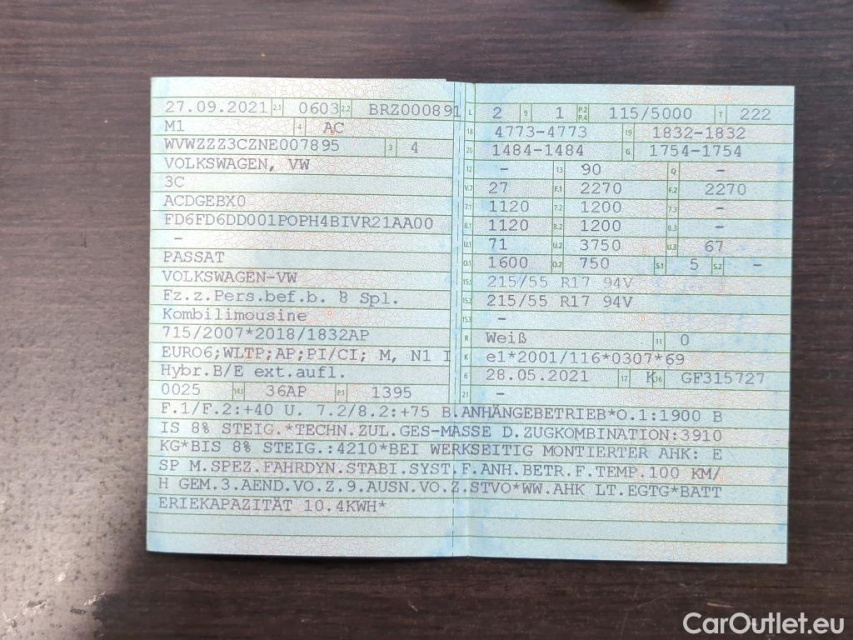 27.09.2021 2.1 0603 2.2 BRZ000891
M1 4 AC
WVWZZZ3CZNE007895 3 4
VOLKSWAGEN, VW
3C
ACDGEBX0
FD6FD6DD001POPH4BIVR21AA00
–
PASSAT
VOLKSWAGEN-VW
Fz.z.Pers.bef.b. 8 Spl.
Kombilimousine
715/2007*2018/1832AP
EURO6;WLTP;AP;PI/CI; M, N1 I
Hybr.B/E ext.aufl.
0025 36AP 1395
L 2 9 1 P.2 P.4 115/5000 T 222
18 4773-4773 19 1832-1832
20 1484-1484 G 1754-1754
12 – 13 90 Q –
V.7 27 F.1 2270 F.2 2270
7.1 1120 7.2 1200 7.3 –
8.1 1120 8.2 1200 8.3 –
U.1 71 U.2 3750 U.3 67
O.1 1600 O.2 750 S.1 5 S.2 –
15.1 215/55 R17 94V
15.2 215/55 R17 94V
15.3 –
R Weiß 11 0
K e1*2001/116*0307*69
6 28.05.2021 17 K 16 GF315727
21 –
F.1/F.2:+40 U. 7.2/8.2:+75 B.ANHÄNGEBETRIEB*O.1:1900 B
IS 8% STEIG.*TECHN.ZUL.GES-MASSE D.ZUGKOMBINATION:3910
KG*BIS 8% STEIG.:4210*BEI WERKSEITIG MONTIERTER AHK: E
SP M.SPEZ.FAHRDYN.STABI.SYST.F.ANH.BETR.F.TEMP.100 KM/
H GEM.3.AEND.VO.Z.9.AUSN.VO.Z.STVO*WW.AHK LT.EGTG*BATT
ERIEKAPAZITÄT 10.4KWH*
CarOutlet.eu